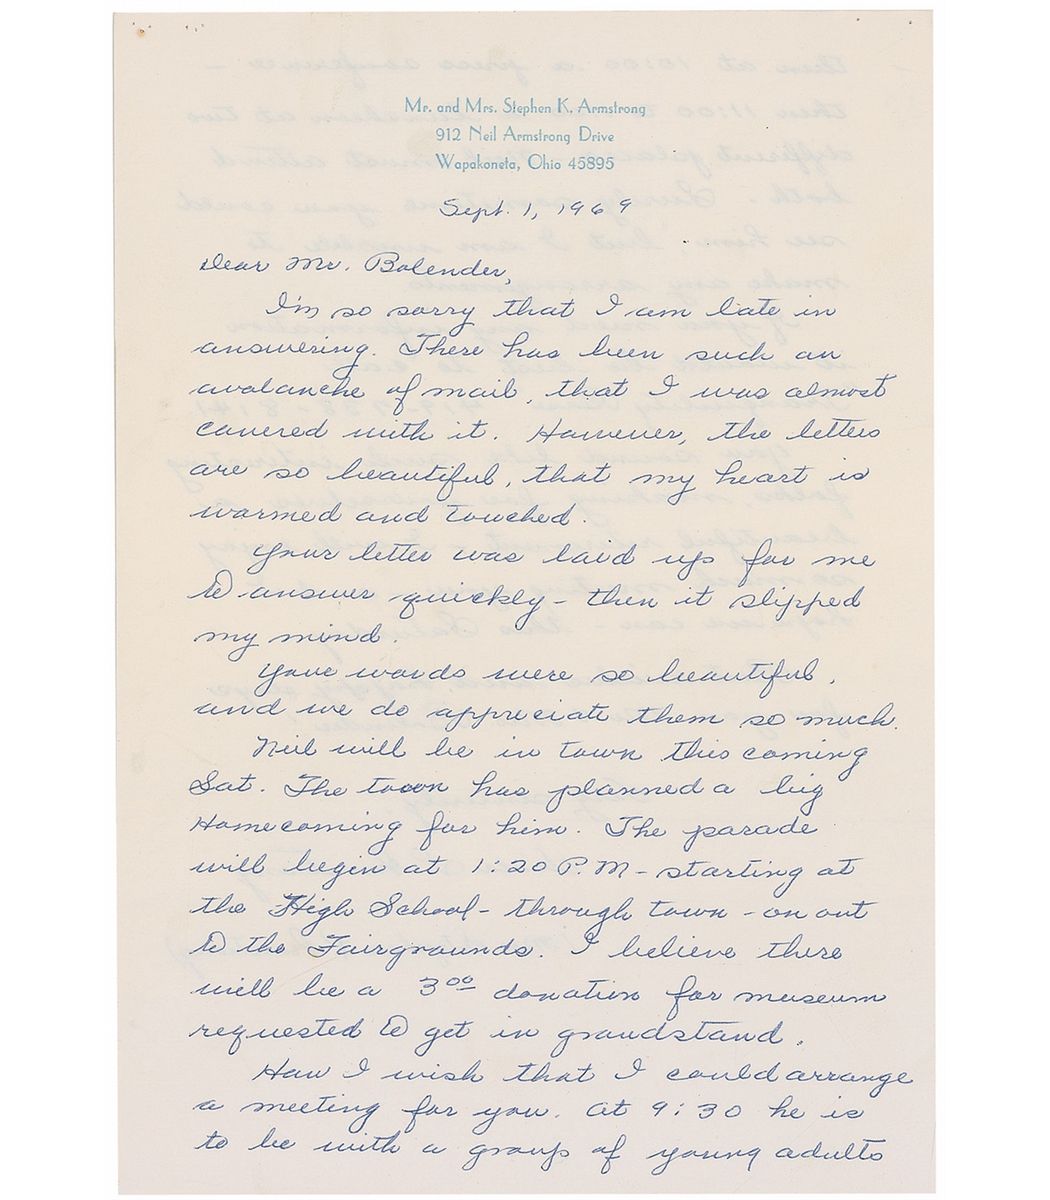 Mr. and Mrs. Stephen K. Armstrong
912 Neil Armstrong Drive
Wapakoneta, Ohio 45895
Sept. 1, 1969
Dear Mr. Bolender,
I'm so sorry that I am late in
answering. There has been such an
avalanche of mail, that I was almost
covered with it. However, the letters
are so beautiful, that my heart is
warmed and touched.
Your letter was laid up for me
to answer quickly - then it slipped
my mind.
Your words were so beautiful,
and we do appreciate them so much.
Neil will be in town this coming
Sat. The town has planned a big
Homecoming for him. The parade
will begin at 1:20 P.M - starting at
the High School - through town - on out
to the Fairgrounds. I believe there
will be a 3⁰⁰ donation for museum
requested to get in grandstand.
How I wish that I could arrange
a meeting for you. At 9:30 he is
to be with a group of young adults